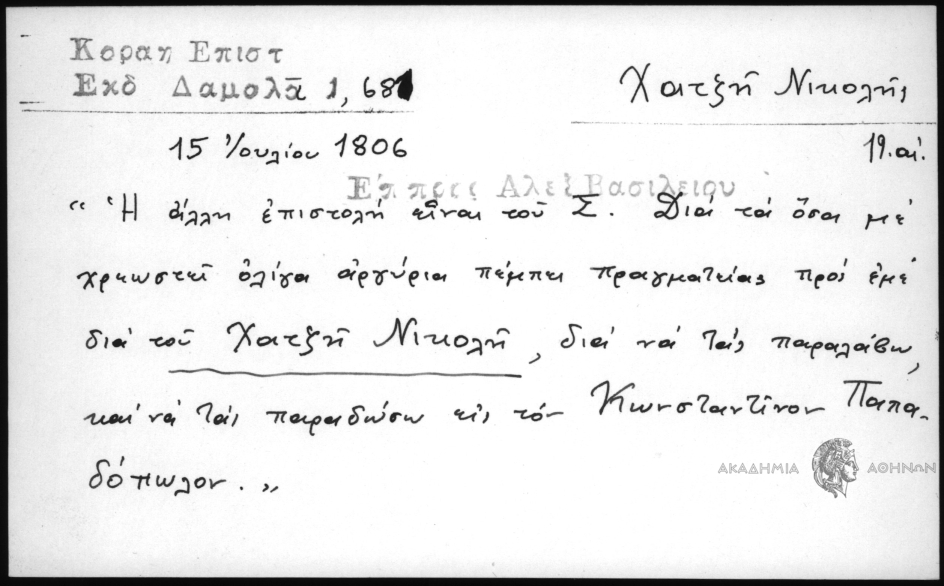 Κοραη Επιστ
Εκδ Δαμαλᾶ 1, 68
Χατζῆ Νικολῆς
15 Ἰουλίου 1806
19.αἰ.
Επ πρες Αλεξ Βασιλειου
“ Ἡ ἄλλη ἐπιστολή εἶναι τοῦ Σ. Διά τά ὅσα μέ
χρεωστεῖ ὀλίγα ἀργύρια πέμπει πραγματείας πρός ἐμέ
διά τοῦ Χατζῆ Νικολῆ, διά νά τάς παραλάβω,
καί νά τάς παραδώσω εἰς τόν Κωνσταντῖνον Παπα-
δόπωλον. „
ΑΚΑΔΗΜΙΑ ΑΘΗΝΩΝ